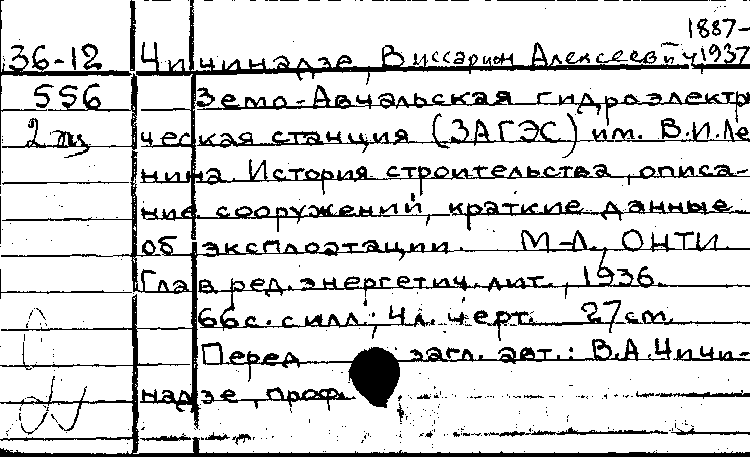 1887-
36-12 Чичинадзе, Виссарион Алексеевич, 1937
556 Земо-Авчальская гидроэлектри
2 экз ческая станция (ЗАГЭС) им. В.И.Ле
нина. История строительства, описа-
ние сооружений, краткие данные
об эксплоатации. М-Л., ОНТИ
Глав. ред. энергетич. лит., 1936.
66с. с илл.; 4л. черт. 27см
Перед загл. авт.: В.А.Чичи-
надзе, проф.